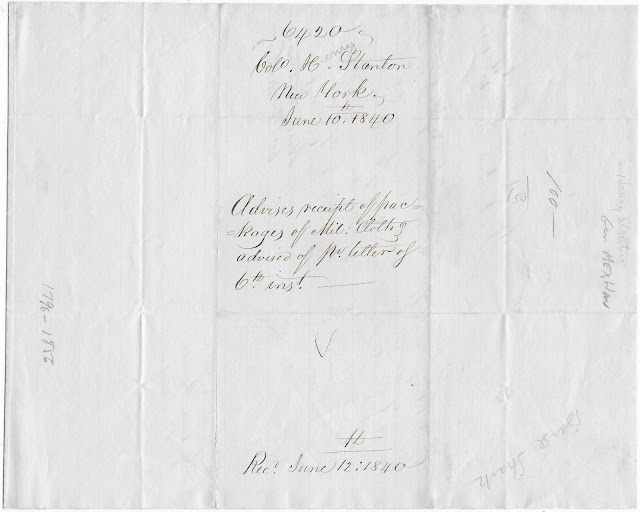 6420
Colo. H. Stanton
New York.
June 10th. 1840
Advises receipt of pac=
=kages of Mil: Clothg
advised of pr. letter of
6th inst.
th
Recd. June 12: 1840
100 —
1796 - 1856